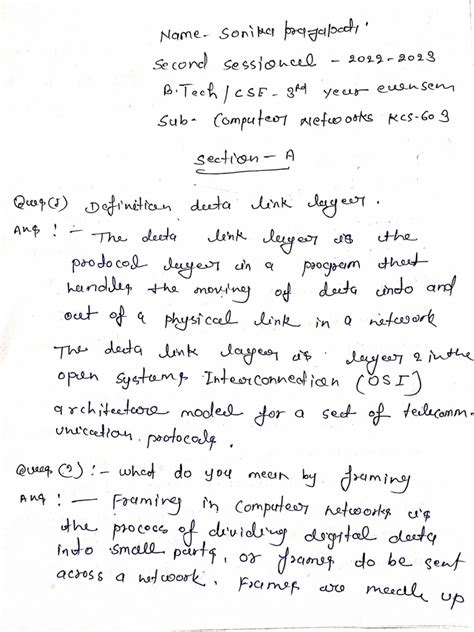 Name- Sonika prajapati
Second sessional - 2022-2023
B.Tech / CSE - 3rd year even sem
Sub- Computer Networks KCS-603
Section - A
Ques(1) Definition data link layer.
Ans :- The data link layer is the
protocol layer in a program that
handles the moving of data into and
out of a physical link in a network
The data link layer is layer 2 in the
open Systems Interconnection (OSI)
architecture model for a set of telecomm-
unication protocols.
Ques (2) :- what do you mean by framing
Ans :- Framing in computer networks is
the process of dividing digital data
into small parts, or frames to be sent
across a network. Frames are made up